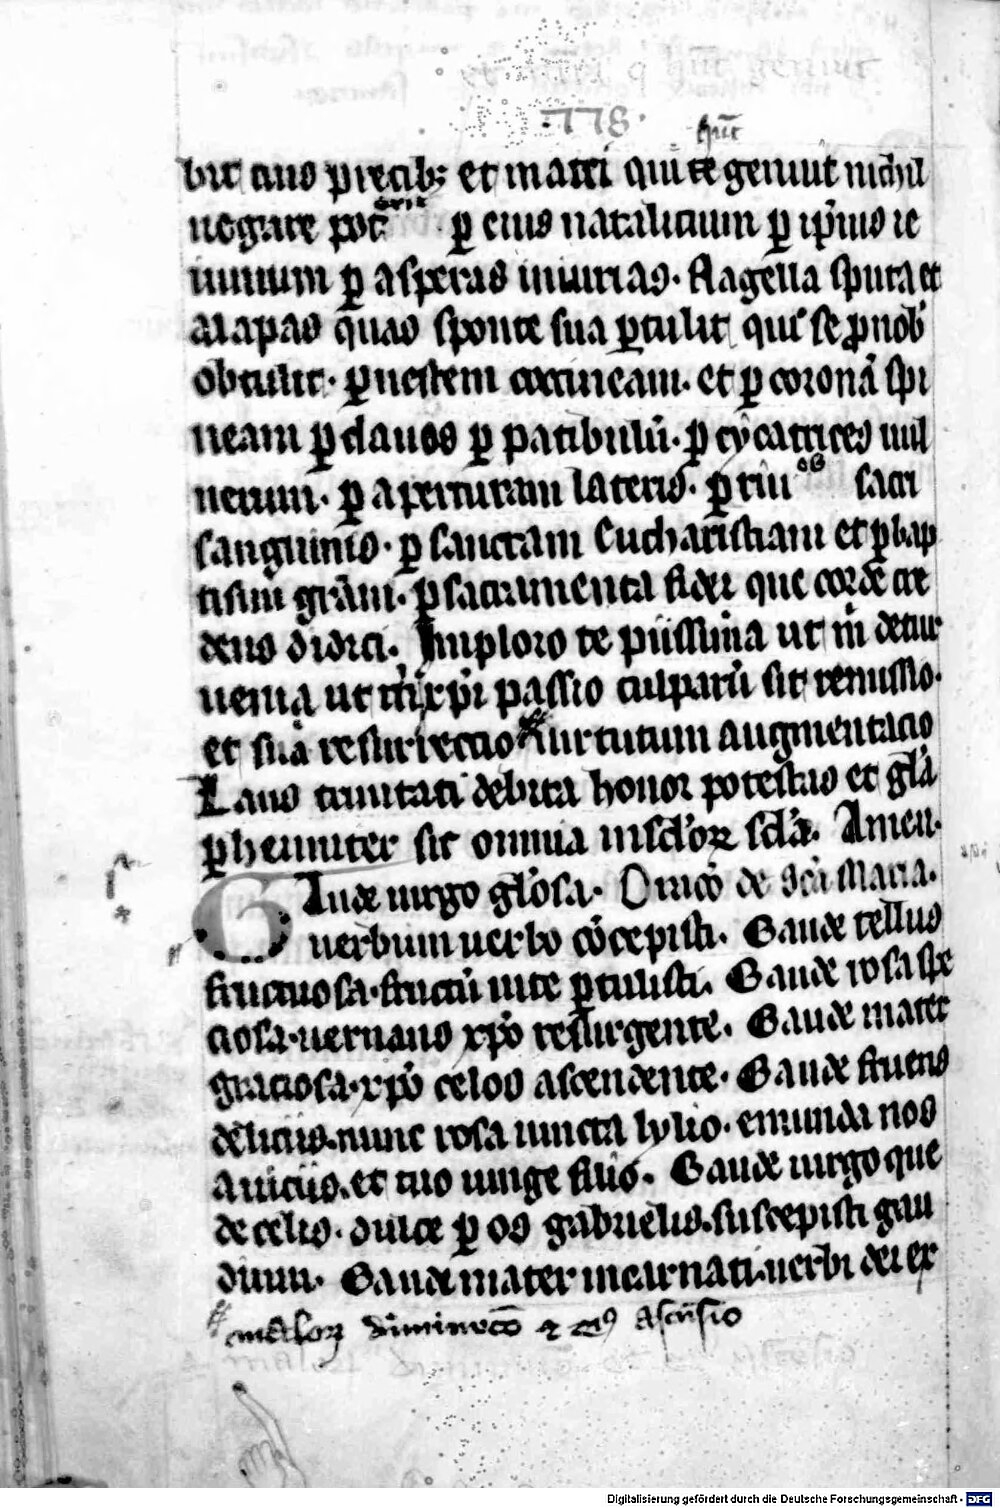 778.
bit tuo precib; et matri qui te genuit nichil
negare pot̃ p eius natalicium p ip̃ius ie
iunium p asperas iniurias. flagella sputa et
alapas quas sponte sua ptulit qui se p nob
obtulit. p uestem coccineam. et p coronã spi
neam p clauos p patibulũ. p cycatrices uul
nerum. p aperturam lateris. p riu sacri
sanguinis. p sanctam Eucharistiam et p bap
tismi grãm. p sacramenta fidei que corde cre
dens didici. Imploro te piissima ut m̃ detur
uenia ut m̃ xp̃i passio culparũ sit remissio.
et sua resurreccio uirtutum augmentacio
Laus trinitati debita honor potestas et glã
phenniter sit omnia in sclorꝝ scla. Amen.
GAude uirgo glosa. Oracõ de Scã Maria.
uerbum uerbo cõcepisti. Gaude tellus
fructuosa. fructũ uite ptulisti. Gaude rosa spe
ciosa. uernans xp̃o resurgente. Gaude mater
graciosa. xp̃o celos ascendente. Gaude fruens
deliciis. nunc rosa iuncta lylio. emunda nos
a uiciis. et tuo iunge filio. Gaude uirgo que
de celis. dulce p os gabrielis. suscepisti gau
dium. Gaude mater incarnati. uerbi dei ex
Digitalisierung gefördert durch die Deutsche Forschungsgemeinschaft - DFG